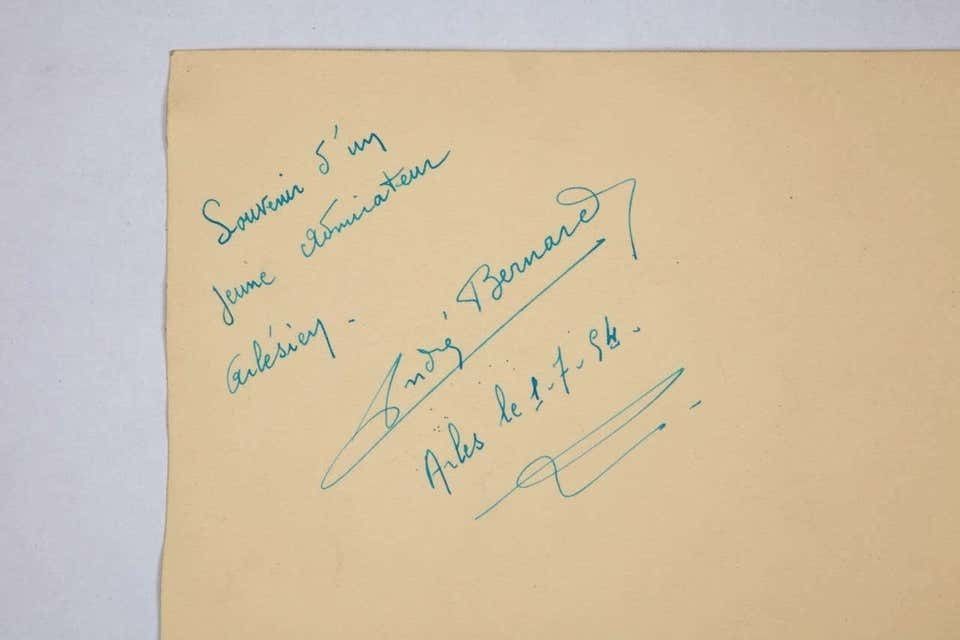 Souvenir d'un
jeune admirateur
arlésien -
André Bernard
Arles le 1-7-54.